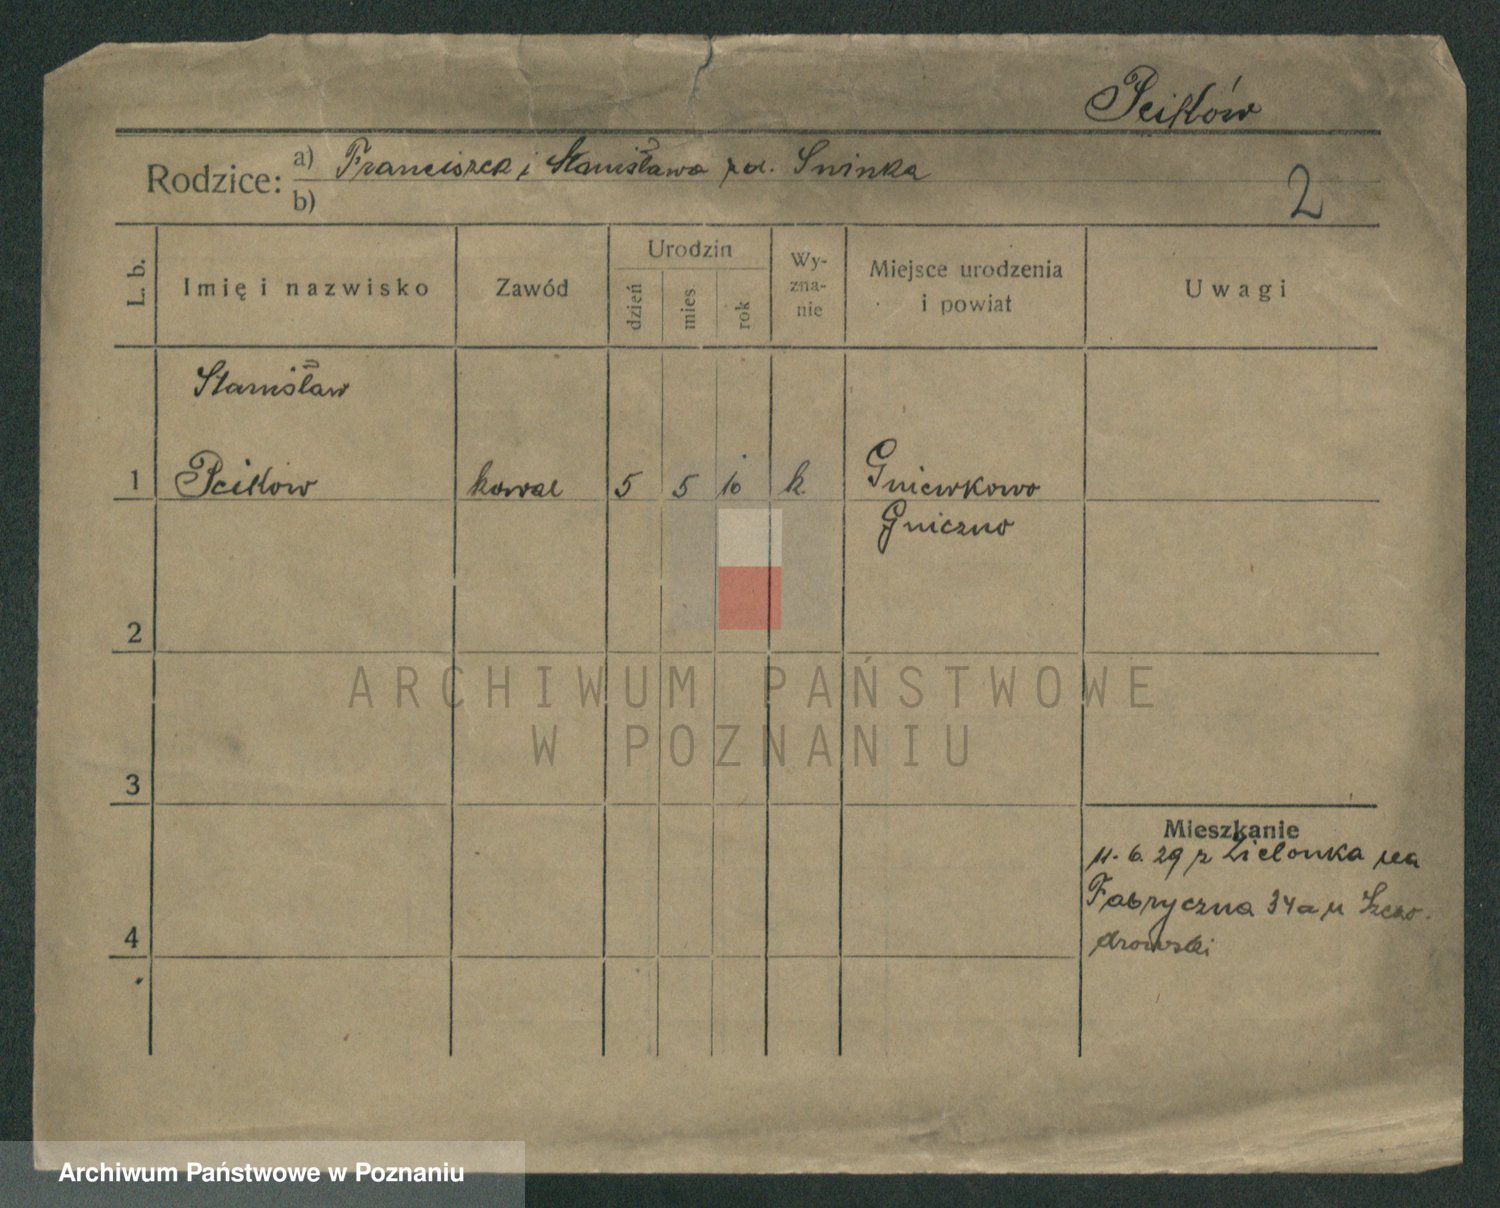 Pciłków
Rodzice: a) Franciszek i Stanisława zd. Swinka
b)
2
L. b. Imię i nazwisko Zawód Urodzin dzień mies rok Wy-zna-nie Miejsce urodzenia i powiat Uwagi
Stanisław
1 kowal 5 5 10 k. Gniewkowo
Gniezno
2
3
Mieszkanie
11. 6. 29 z Zielonka na
4 Fabryczna 34a u Szczo-
drowski
ARCHIWUM PAŃSTWOWE
W POZNANIU
Archiwum Państwowe w Poznaniu